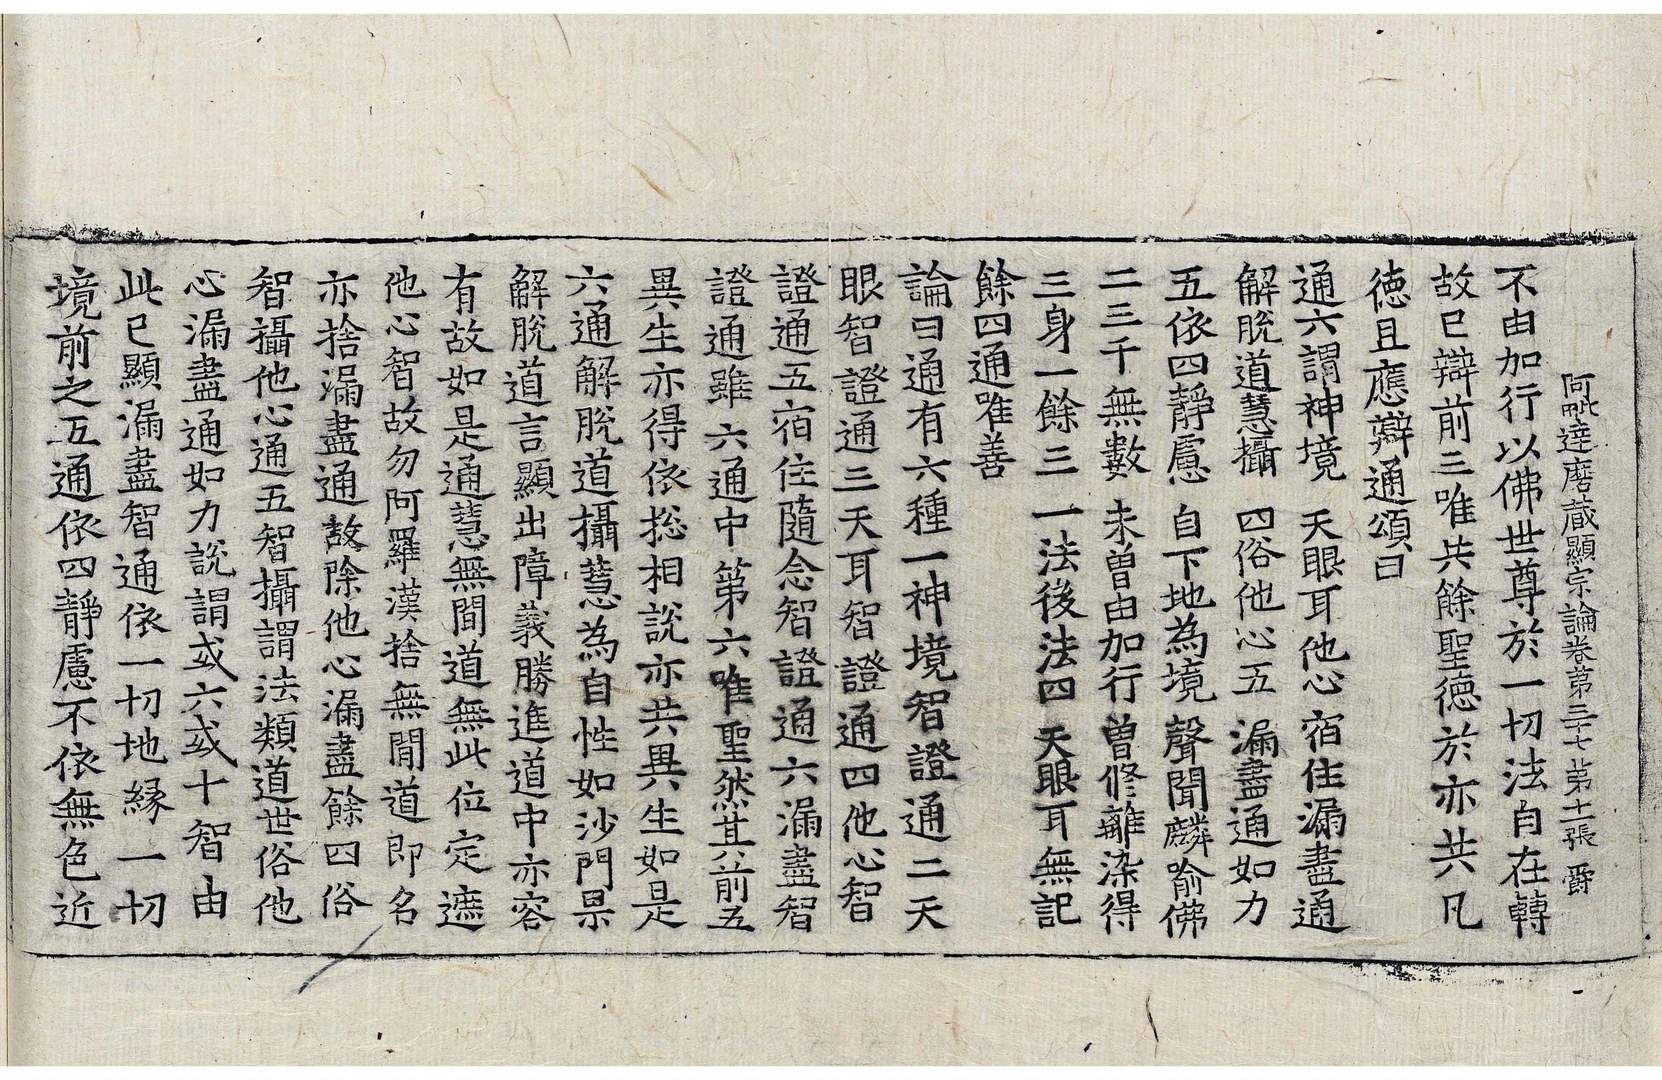 阿毗達磨蔵顯宗論卷第三十七 第十一張 爵
不由加行以佛世尊於一切法自在轉
故已辯前三唯共餘聖德於亦共凡
德且應辯通頌曰
通六謂神境 天眼耳他心 宿住漏盡通
解脫道慧攝 四俗他心五 漏盡通如力
五依四靜慮 自下地為境 聲聞麟喻佛
二三千無數 未曾由加行 曾修離染得
三身一餘三 一法後法四 天眼耳無記
餘四通唯善
論曰通有六種一神境智證通二天
眼智證通三天耳智證通四他心智
證通五宿住隨念智證通六漏盡智
證通雖六通中第六唯聖然其前五
異生亦得依捴相說亦共異生如是
六通解脫道攝慧為自性如沙門果
解脫道言顯出障義勝進道中亦容
有故如是通慧無間道無此位定遮
他心智故勿阿羅漢捨無間道即名
亦捨漏盡通故除他心漏盡餘四俗
智攝他心通五智攝謂法類道世俗他
心漏盡通如力說謂或六或十智由
此已顯漏盡智通依一切地緣一切
境前之五通依四靜慮不依無色近